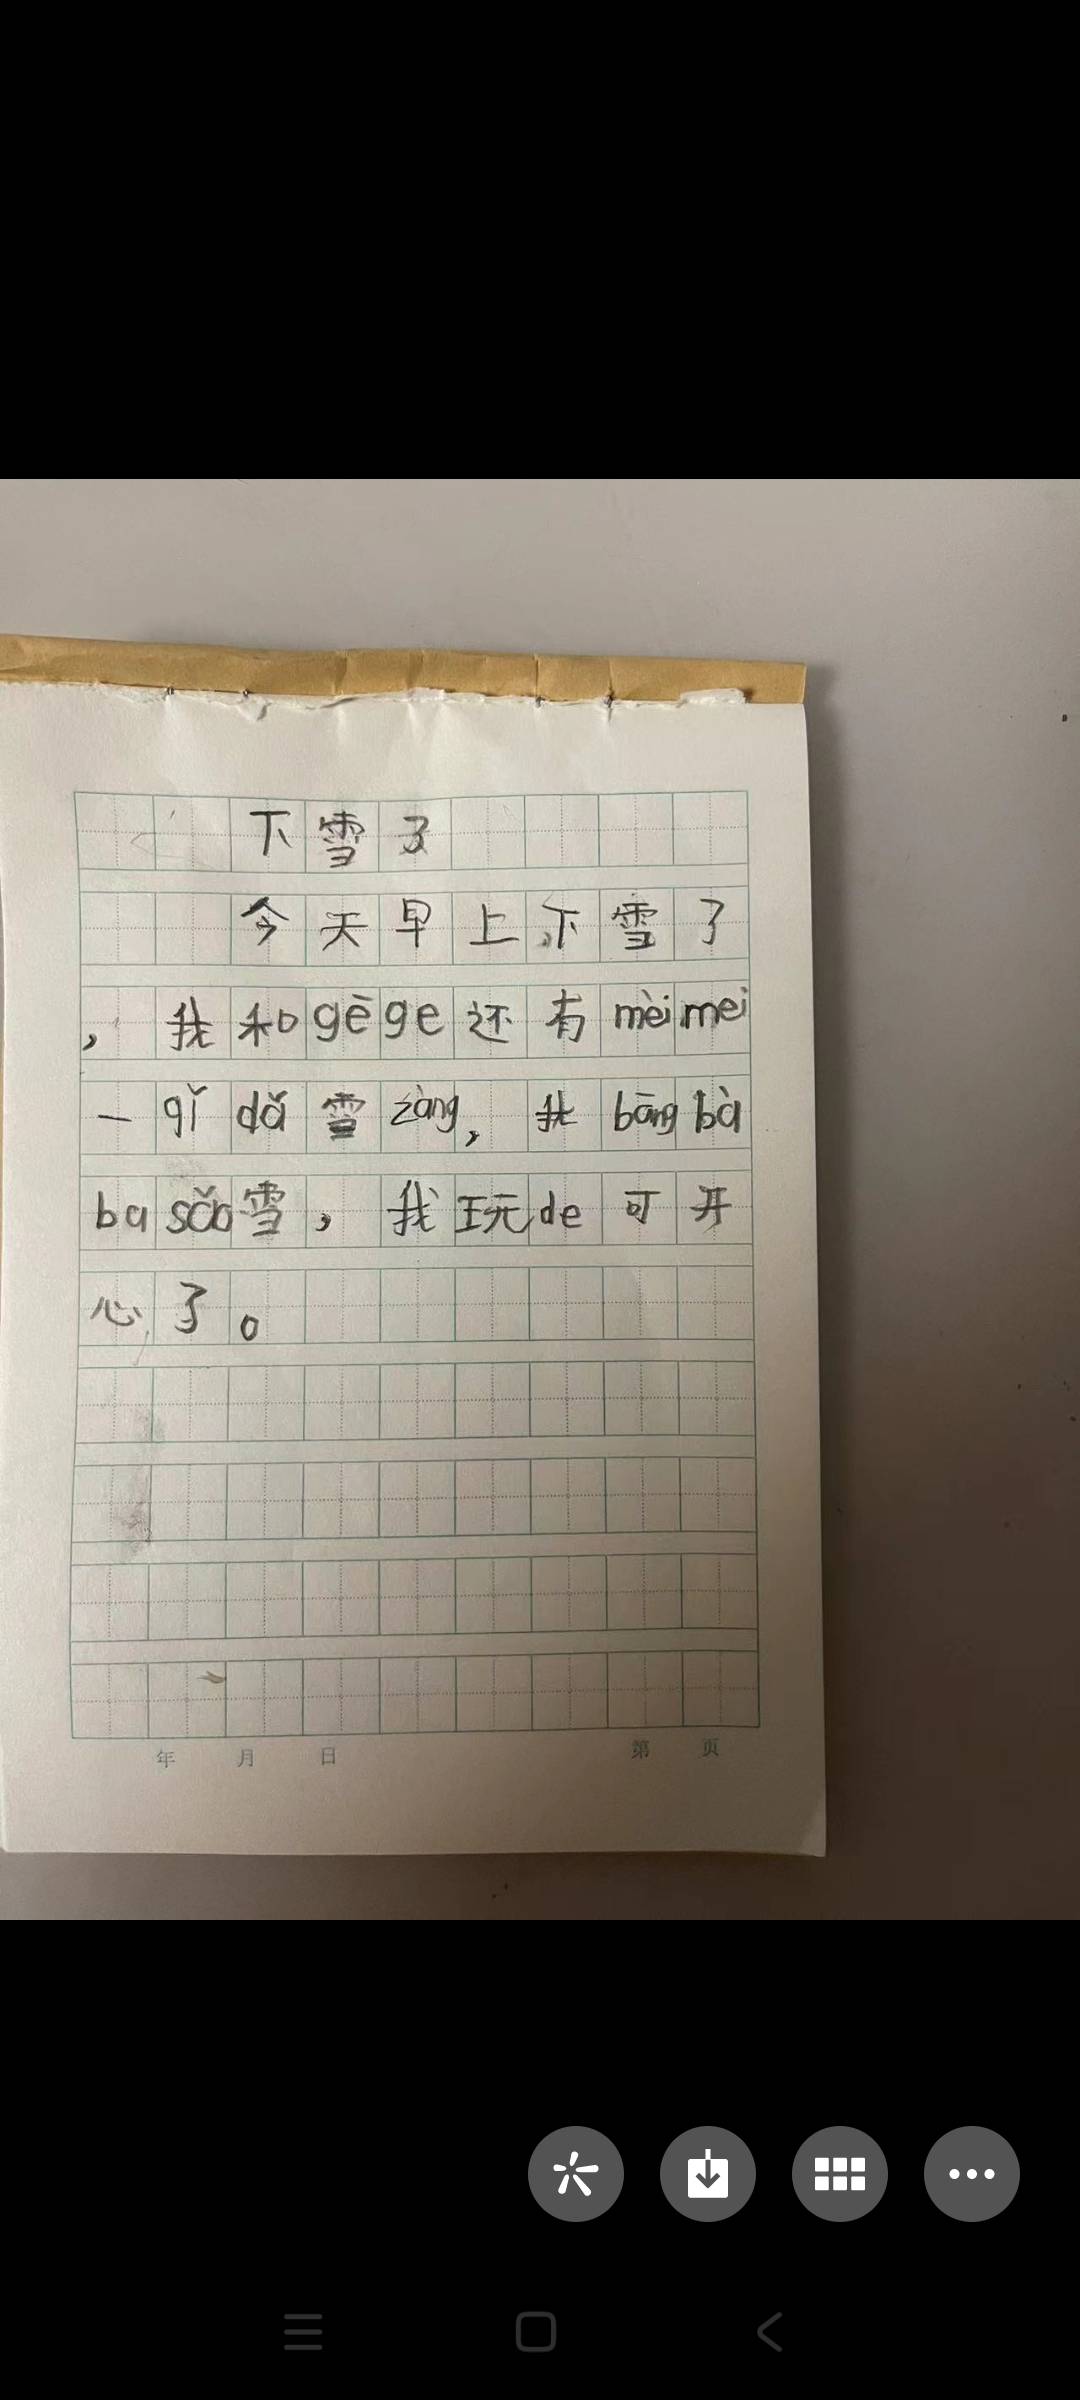 下雪了
今天早上下雪了
，我和gēge还有mèimei
一qǐdǎ雪zàng，我bāngbà
basǎo雪，我玩de可开
心了。
年 月 日 第 页